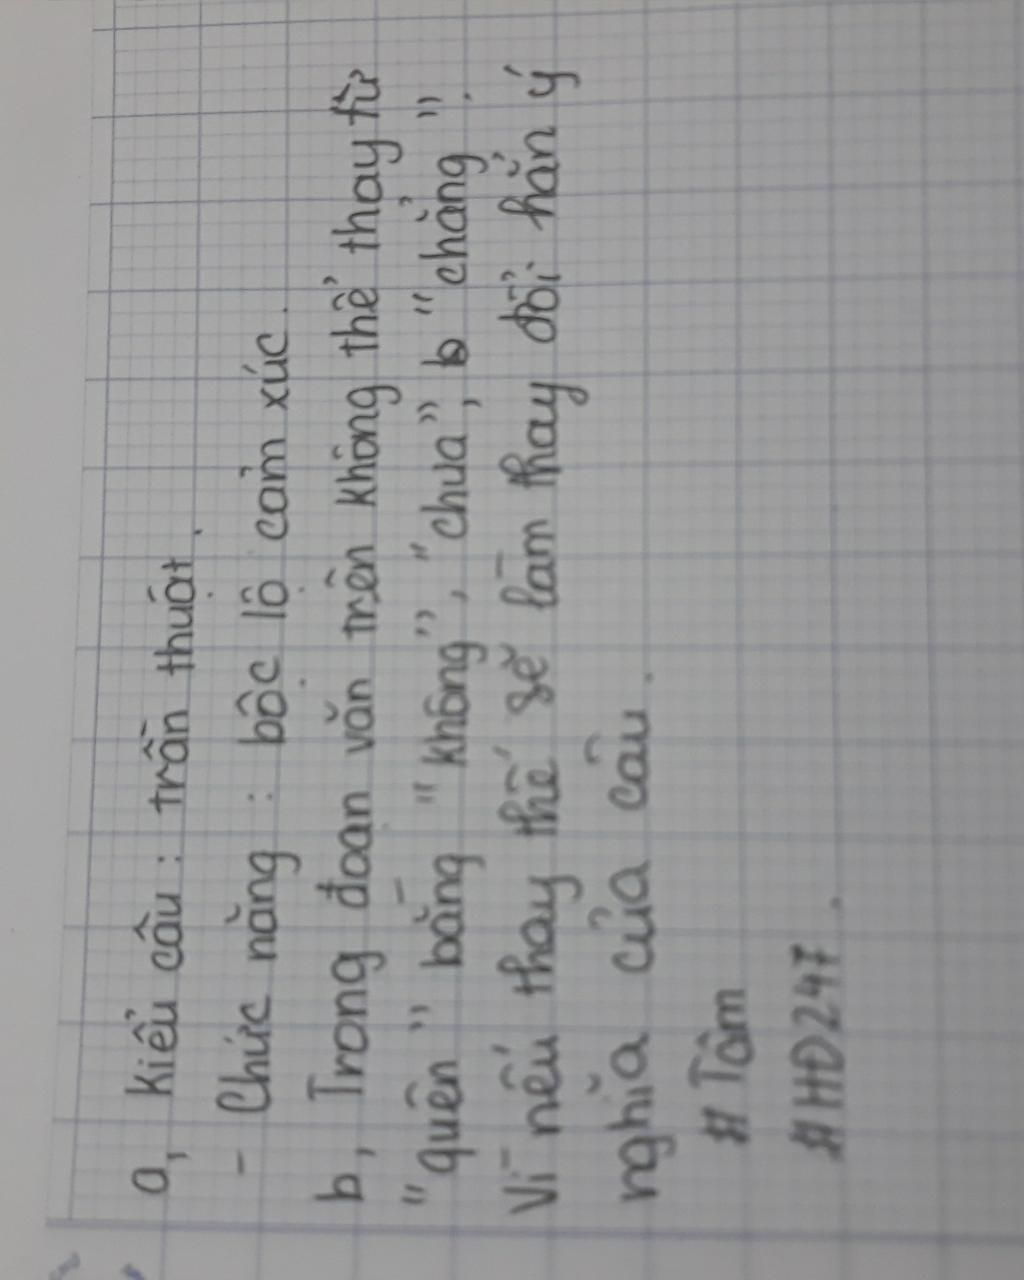 a, Kiểu câu : trần thuật.
- Chức năng : bộc lộ cảm xúc.
b, Trong đoạn văn trên không thể thay từ
"quên" bằng "không", "chưa", "chẳng".
Vì nếu thay thế sẽ làm thay đổi hẳn ý
nghĩa của câu.
# Tâm
# HĐ247.